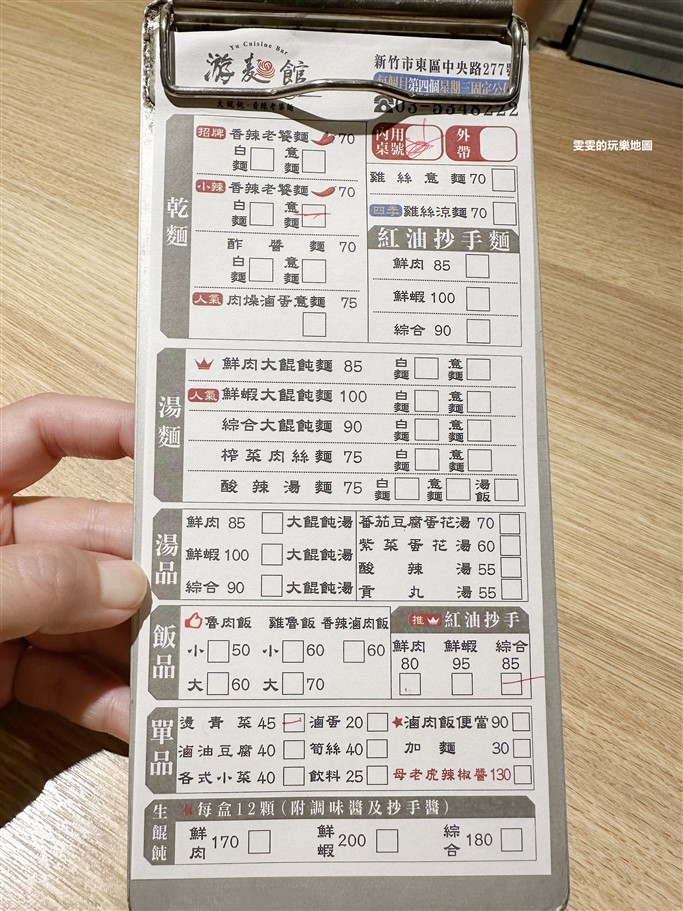 Yu Cuisine Bar
游麵館
大餛飩·香辣老饕麵
新竹市東區中央路277號
每個月第四個星期三固定公休
☎03-5348222
雯雯的玩樂地圖
乾麵
招牌 香辣老饕麵 70
白麵 意麵
小辣 香辣老饕麵 70
白麵 意麵
酢醬麵 70
白麵 意麵
人氣 肉燥滷蛋意麵 75
內用桌號 外帶
雞絲意麵 70
四季 雞絲涼麵 70
紅油抄手麵
鮮肉 85
鮮蝦 100
綜合 90
湯麵
鮮肉大餛飩麵 85 白麵 意麵
人氣 鮮蝦大餛飩麵 100 白麵 意麵
綜合大餛飩麵 90 白麵 意麵
榨菜肉絲麵 75 白麵 意麵
酸辣湯麵 75 白麵 意麵 湯飯
湯品
鮮肉 85 大餛飩湯
鮮蝦 100 大餛飩湯
綜合 90 大餛飩湯
蕃茄豆腐蛋花湯 70
紫菜蛋花湯 60
酸辣湯 55
貢丸湯 55
飯品
魯肉飯 雞魯飯 香辣滷肉飯
小 50 小 60 60
大 60 大 70
推 紅油抄手
鮮肉 鮮蝦 綜合
80 95 85
單品
燙青菜 45 滷蛋 20 ★滷肉飯便當 90
滷油豆腐 40 筍絲 40 加麵 30
各式小菜 40 飲料 25 母老虎辣椒醬 130
生餛飩
每盒12顆(附調味醬及抄手醬)
鮮肉 170 鮮蝦 200 綜合 180